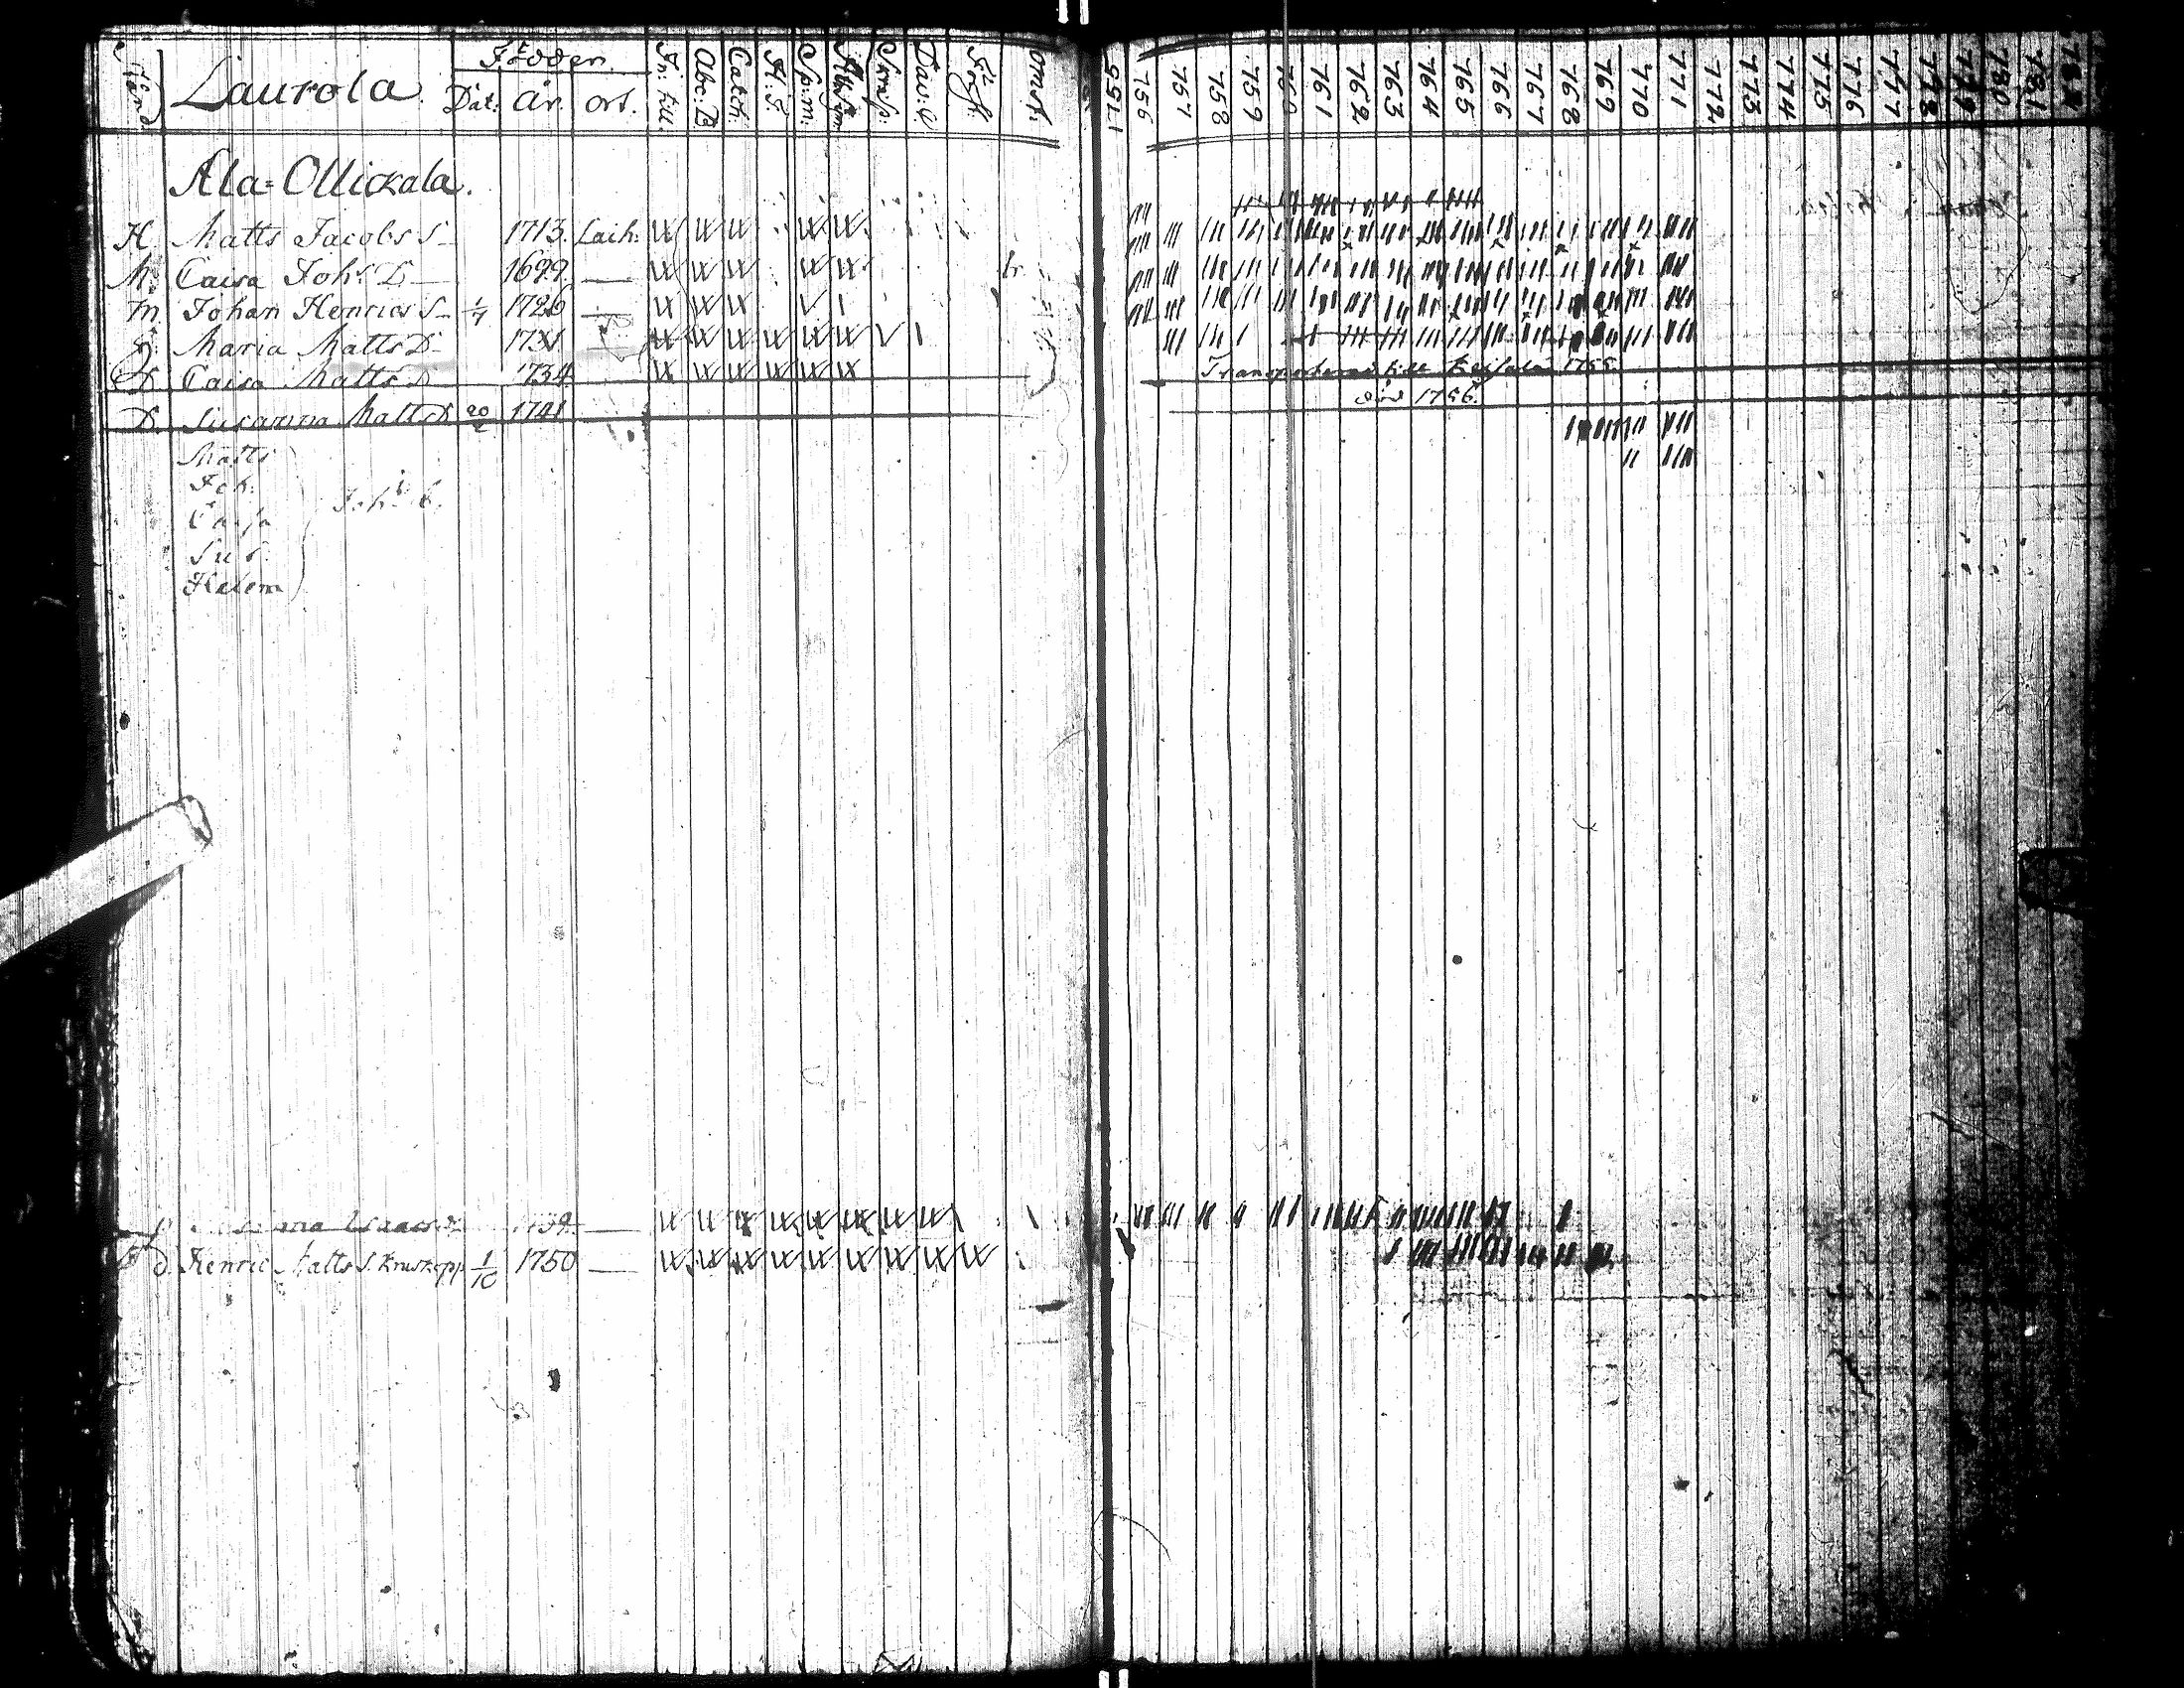 Laurola.
Födder.
Dat: år. ort.
In: till.
Abc: B
Catch:
Sp: m:
Dav: Ps
1755 756 757 758 759 760 761 762 763 764 765 766 767 768 769 770 771 772 773 774 775 776 777 778 779 780 781
Ala=Ollickala.
H. Matts Jacobs S 1713. Laih:
M. Caisa Joh: D 1699
M Johan Henrics S 1/4 1726
Maria Matts D 1731
D. Caisa Matts D 1734 Transporterad till 1755.
D. Susanna Matts D. 20/2 1741 död 1756.
Matts
Joh:
Caisa Joh: b.
Sus.
Helena
Isaacs D 1739
d. Henric Matts S. Kruskopp 1/10 1750